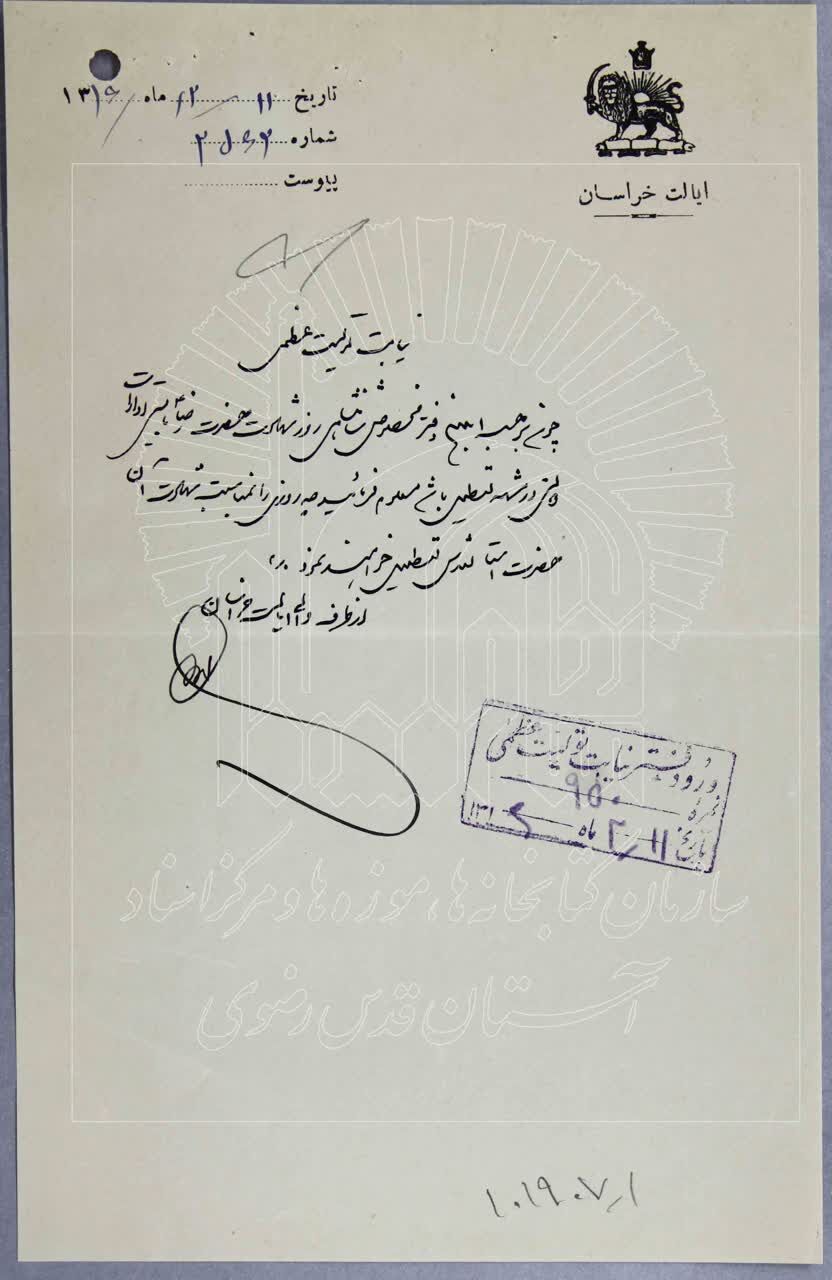 ایالت خراسان
تاریخ ۱۱ / ۲ ماه ۱۳۱۶
شماره
پیوست
نیابت تولیت عظمی
چون بر حسب ابلاغ دفتر مخصوص شاهنشاهی روز شهادت حضرت رضا ع بایستی ادارات
دولتی در مشهد تعطیل باشد معلوم فرمائید چه روزی را بمناسبت شهادت آن
حضرت آستان قدس تعطیل خواهند نمود
از طرف والی ایالت خراسان
ورود دفتر نیابت تولیت عظمی
نمره ۹۵۰
تاریخ ۱۱ / ۲ ماه ۱۳۱۶
سازمان کتابخانه‌ها، موزه‌ها و مرکز اسناد
آستان قدس رضوی
۱۰۱۹۰۷/۱